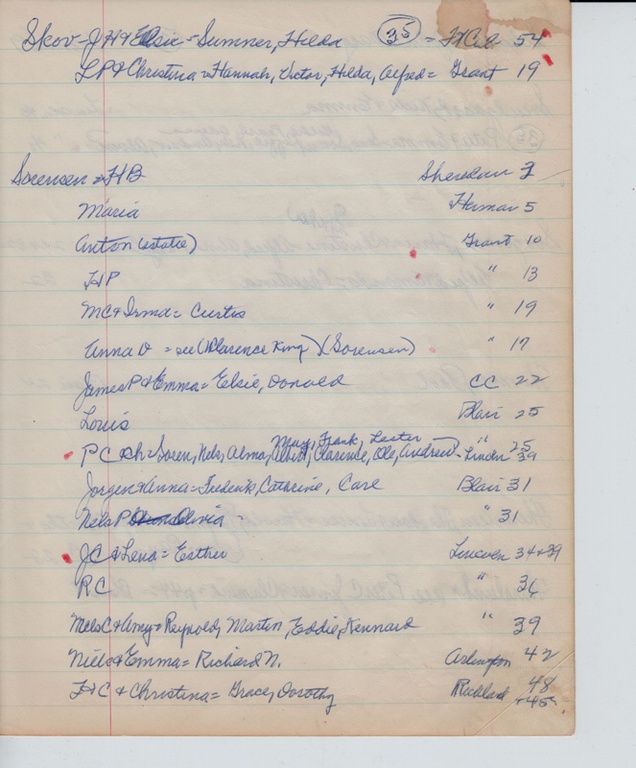 Skov - JH & Elsie = Sumner, Hilda (35) = Ft Cal 54
LP & Christina = Hannah, Victor, Hilda, Alfred = Grant 19
Sorensen = HB Sheridan 3
Maria Herman 5
Anton (estate) Grant 10
HP " 13
MC & Irma = Curtis " 19
Anna D = see (Clarence King) (Sorensen) " 17
James P & Emma = Elsie, Donald CC 22
Louis Blair 25
May, Frank, Lester " 25
PC & h = Soren, Nels, Alma, Albert, Clarence, Ole, Andrew - Lincoln 39
Jorgen & Anna = Frederik, Catherine, Carl Blair 31
Nels P Olivia - " 31
JC & Lena = Esther Lincoln 34 & 39
RC " 36
Nels C & Amy = Reynold, Martin, Eddie, Kennard " 39
Niels & Emma = Richard N. Arlington 42
H C & Christina = Grace, Dorothy Richland 48
+45